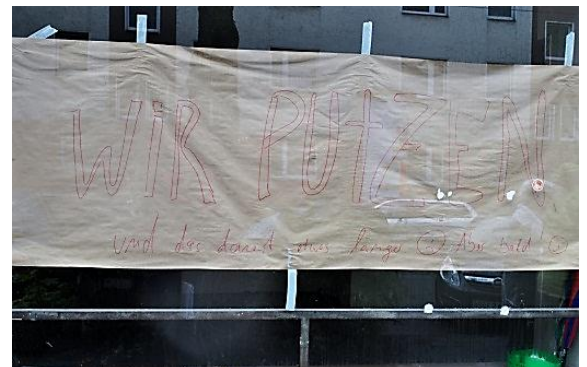 WIR PUTZEN
und das dauert etwas länger ☹ Also bald! ☺